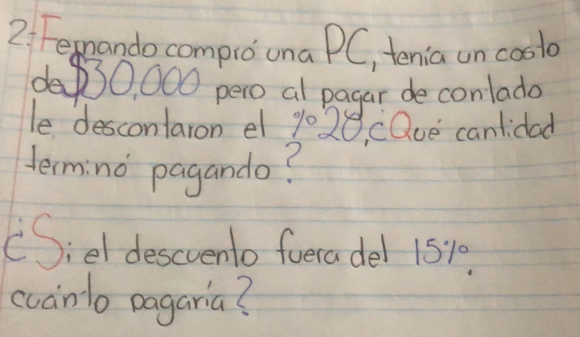 2.- Fernando compró una PC, tenía un costo
de $30,000 pero al pagar de contado
le descontaron el %28, ¿Qué cantidad
terminó pagando?
¿Si el descuento fuera del 15%.
cuánto pagaría?